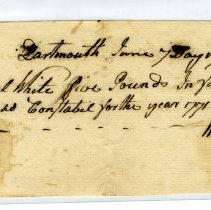 Dartmouth June 7 Day
White five Pounds In
as Constabel for the year 177